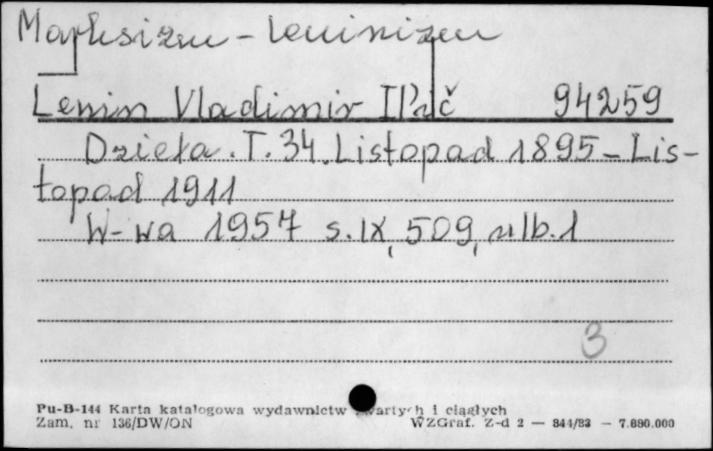 Marksizm - leninizm
Lenin Vladimir Il'ič 94259
Dzieła. T. 34. Listopad 1895 - Lis-
topad 1911
W-wa 1957 s. IX, 509, nlb. 1
3
Pu-B-144 Karta katalogowa wydawnictw zwartych i ciągłych
Zam. nr 136/DW/ON WZGraf. Z-d 2 — 844/83 — 7.880.000